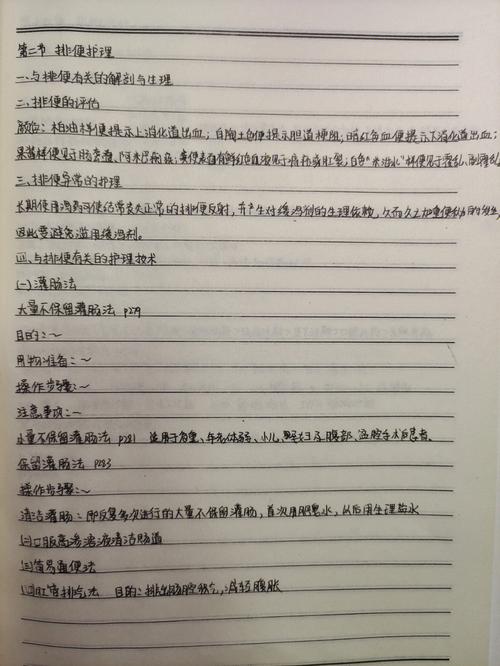 第二节 排便护理
一、与排便有关的解剖与生理
二、排便的评估
颜色：柏油样便提示上消化道出血；白陶土色便提示胆道梗阻；暗红色血便提示下消化道出血；
果酱样便见于肠套叠、阿米巴痢疾；粪便表面有鲜红色血液见于痔疮或肛裂；白色“米泔水”样便见于霍乱、副霍乱。
三、排便异常的护理
长期使用泻药可使经常丧失正常的排便反射，并产生对缓泻剂的生理依赖，久而久之加重便秘的发生，
因此要避免滥用缓泻剂。
四、与排便有关的护理技术
(一)灌肠法
大量不保留灌肠法 P279
目的：～
用物准备：～
操作步骤：～
注意事项：～
小量不保留灌肠法 P281 适用于危重、年老体弱、小儿、孕妇及腹部、盆腔手术后患者。
保留灌肠法 P283
操作步骤：～
清洁灌肠：即反复多次进行的大量不保留灌肠，首次用肥皂水，以后用生理盐水
(二)口服高渗溶液清洁肠道
(三)简易通便法
(四)肛管排气法 目的：排出肠腔积气，减轻腹胀